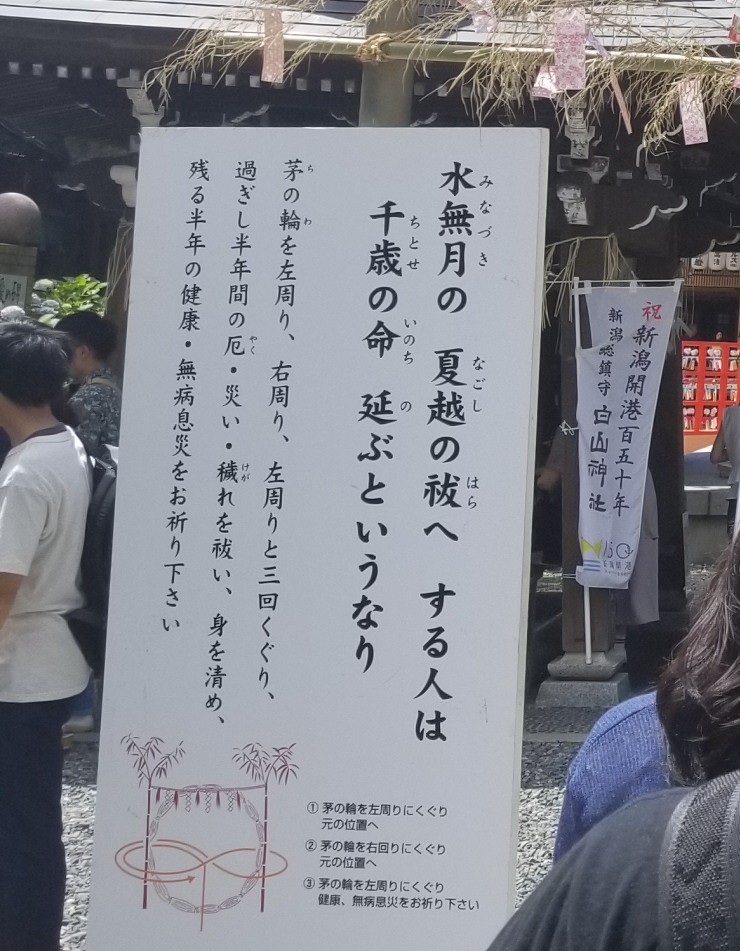 水無月の 夏越の祓へ する人は
千歳の命 延ぶというなり
茅の輪を左周り、右周り、左周りと三回くぐり、
過ぎし半年間の厄・災い・穢れを祓い、身を清め、
残る半年の健康・無病息災をお祈り下さい
みなづき
なごし
はら
ちとせ
いのち
の
ち
わ
やく
けが
① 茅の輪を左周りにくぐり
元の位置へ
② 茅の輪を右回りにくぐり
元の位置へ
③ 茅の輪を左周りにくぐり
健康、無病息災をお祈り下さい
祝 新潟開港百五十年
新潟総鎮守 白山神社
150
新潟開港